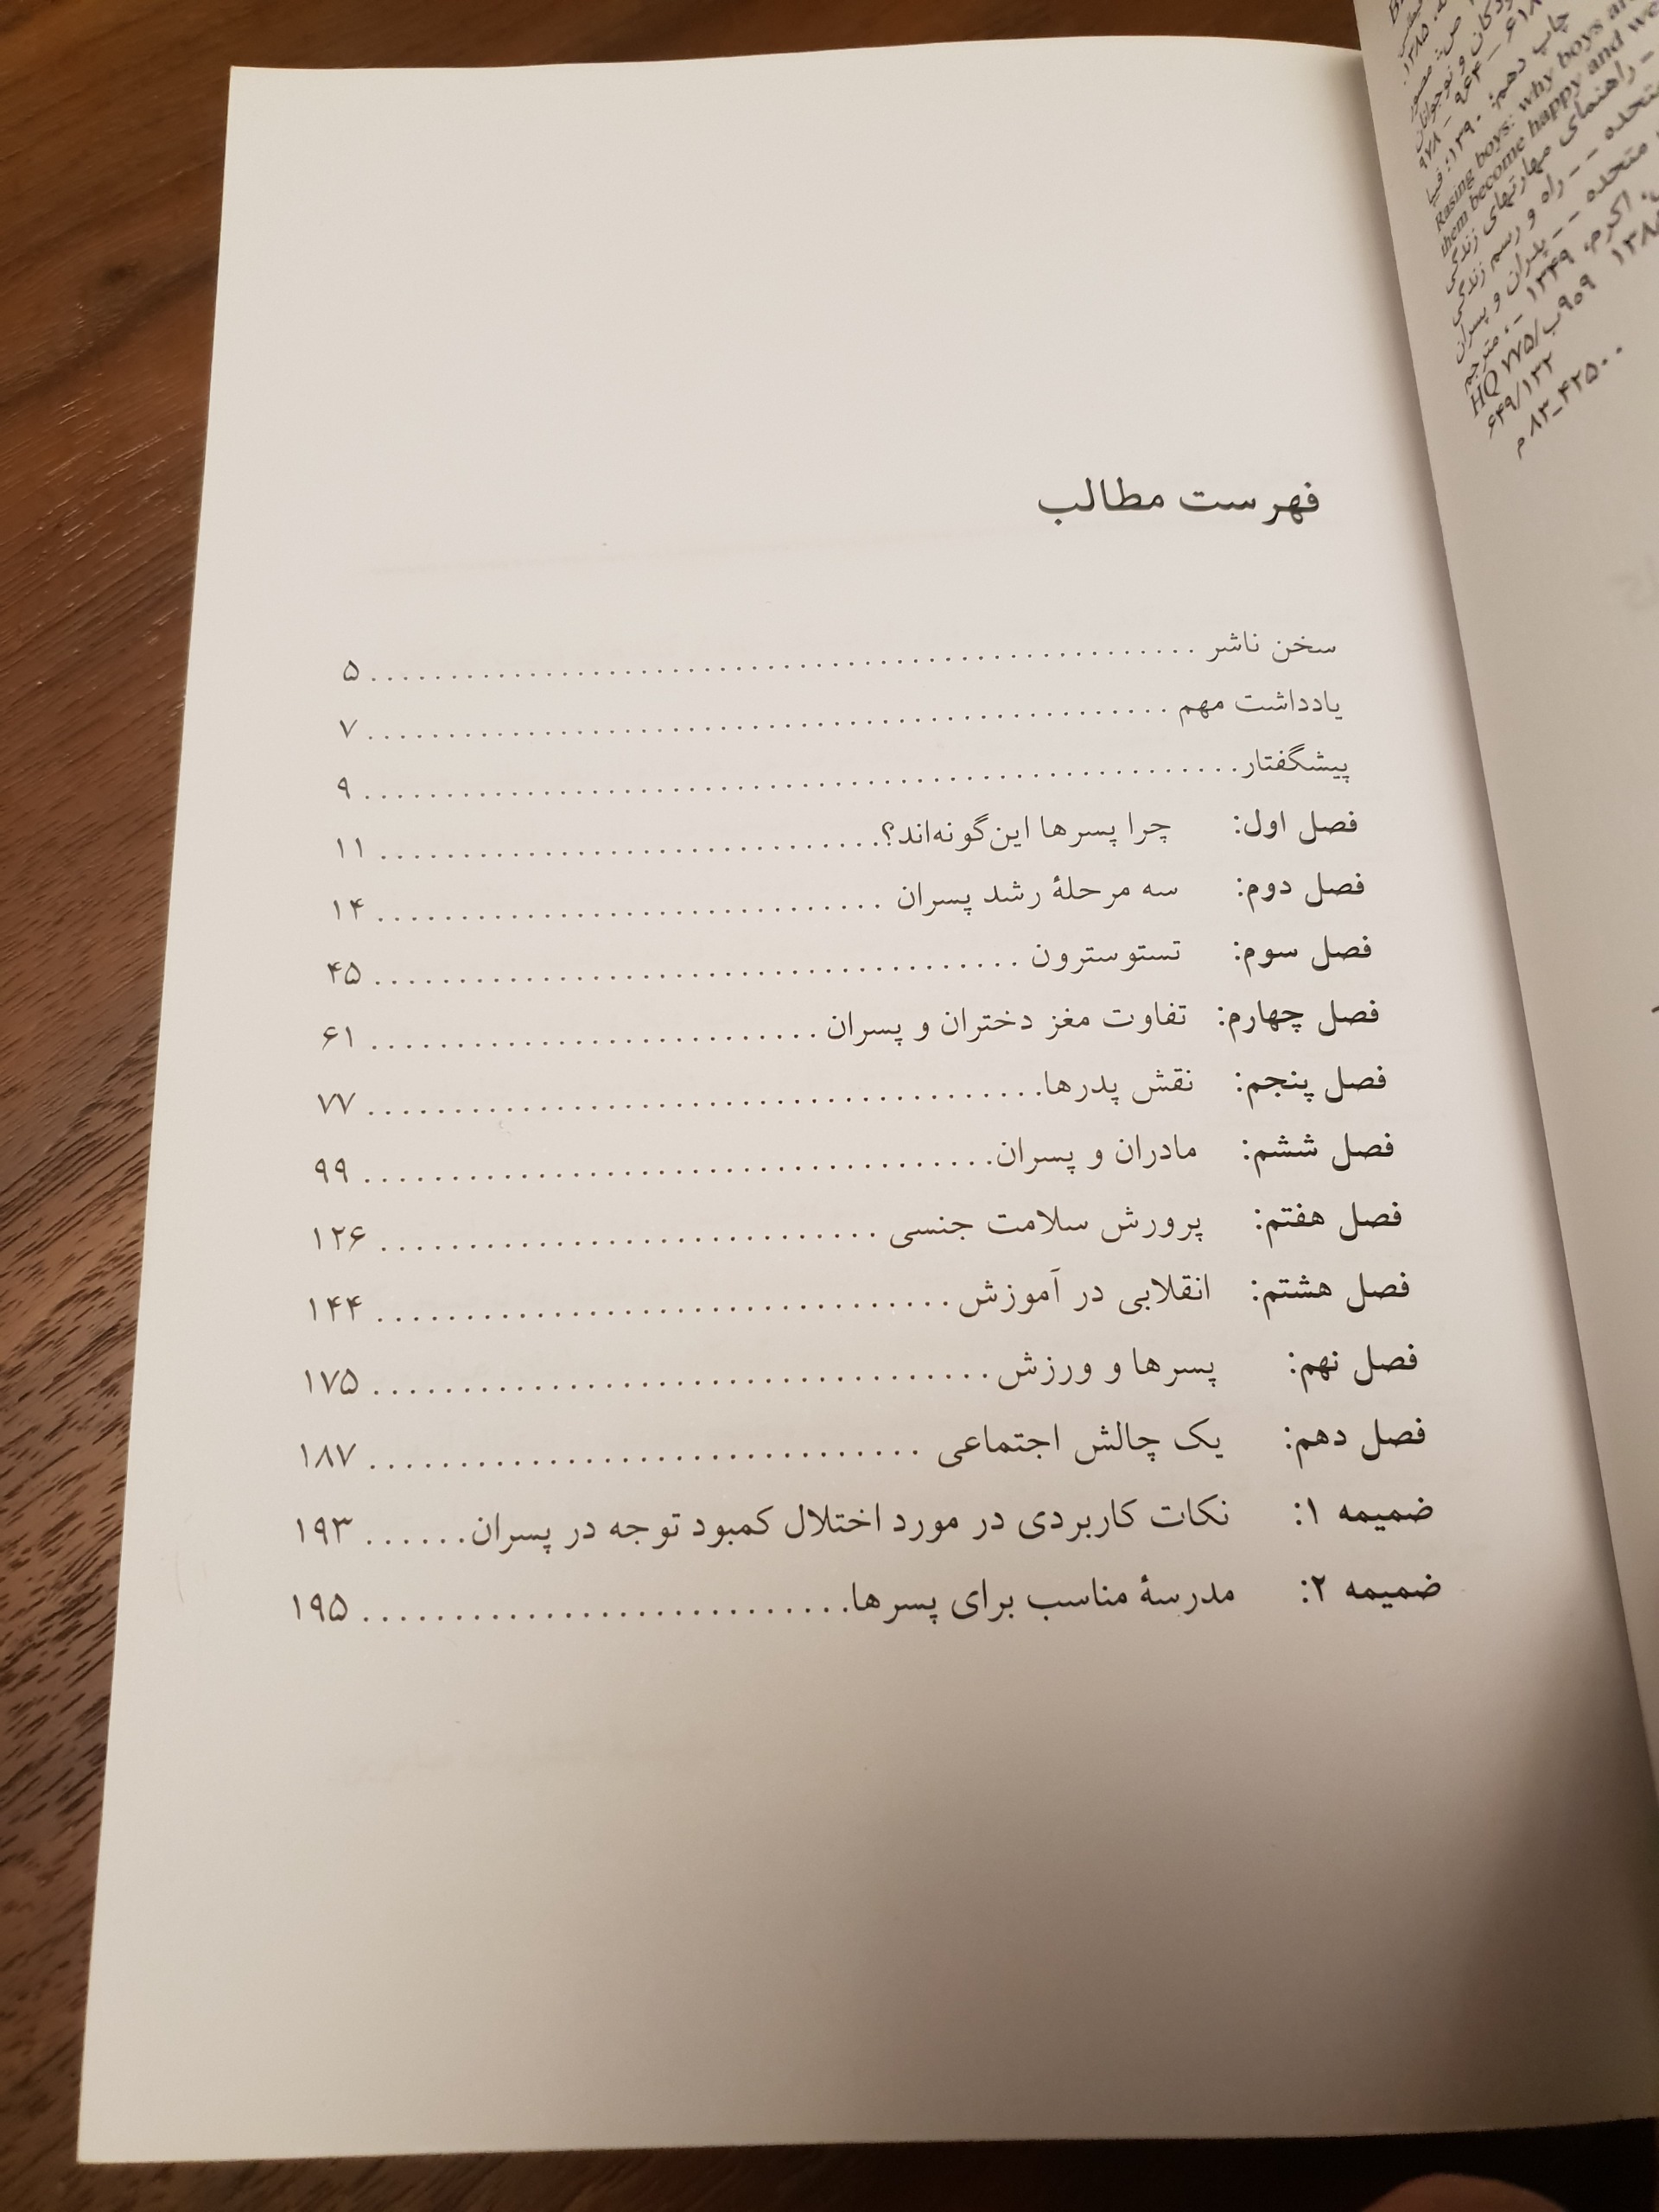 فهرست مطالب
سخن ناشر ........ ۵
یادداشت مهم ........ ۷
پیشگفتار ........ ۹
فصل اول: چرا پسرها این‌گونه‌اند؟ ........ ۱۱
فصل دوم: سه مرحلهٔ رشد پسران ........ ۱۴
فصل سوم: تستوسترون ........ ۴۵
فصل چهارم: تفاوت مغز دختران و پسران ........ ۶۱
فصل پنجم: نقش پدرها ........ ۷۷
فصل ششم: مادران و پسران ........ ۹۹
فصل هفتم: پرورش سلامت جنسی ........ ۱۲۶
فصل هشتم: انقلابی در آموزش ........ ۱۴۴
فصل نهم: پسرها و ورزش ........ ۱۷۵
فصل دهم: یک چالش اجتماعی ........ ۱۸۷
ضمیمه ۱: نکات کاربردی در مورد اختلال کمبود توجه در پسران ...... ۱۹۳
ضمیمه ۲: مدرسهٔ مناسب برای پسرها ........ ۱۹۵
۱۳۸۵.
ص: مصور
چاپ دهم: ۱۳۹۰؛ فیپا
Rasing boys: why boys are
them become happy and we
راهنمای مهارتهای زندگی
متحده -- راه و رسم زندگی
متحده -- پدران و پسران
اکرم، ۱۳۴۹ - ، مترجم
HQ ۷۷۵/ب۹۰۹ ۱۳۸۵
۶۴۹/۱۳۲
م۸۳-۴۲۵۰۰